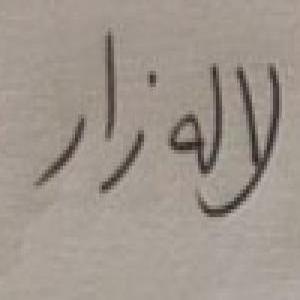 لاله زار